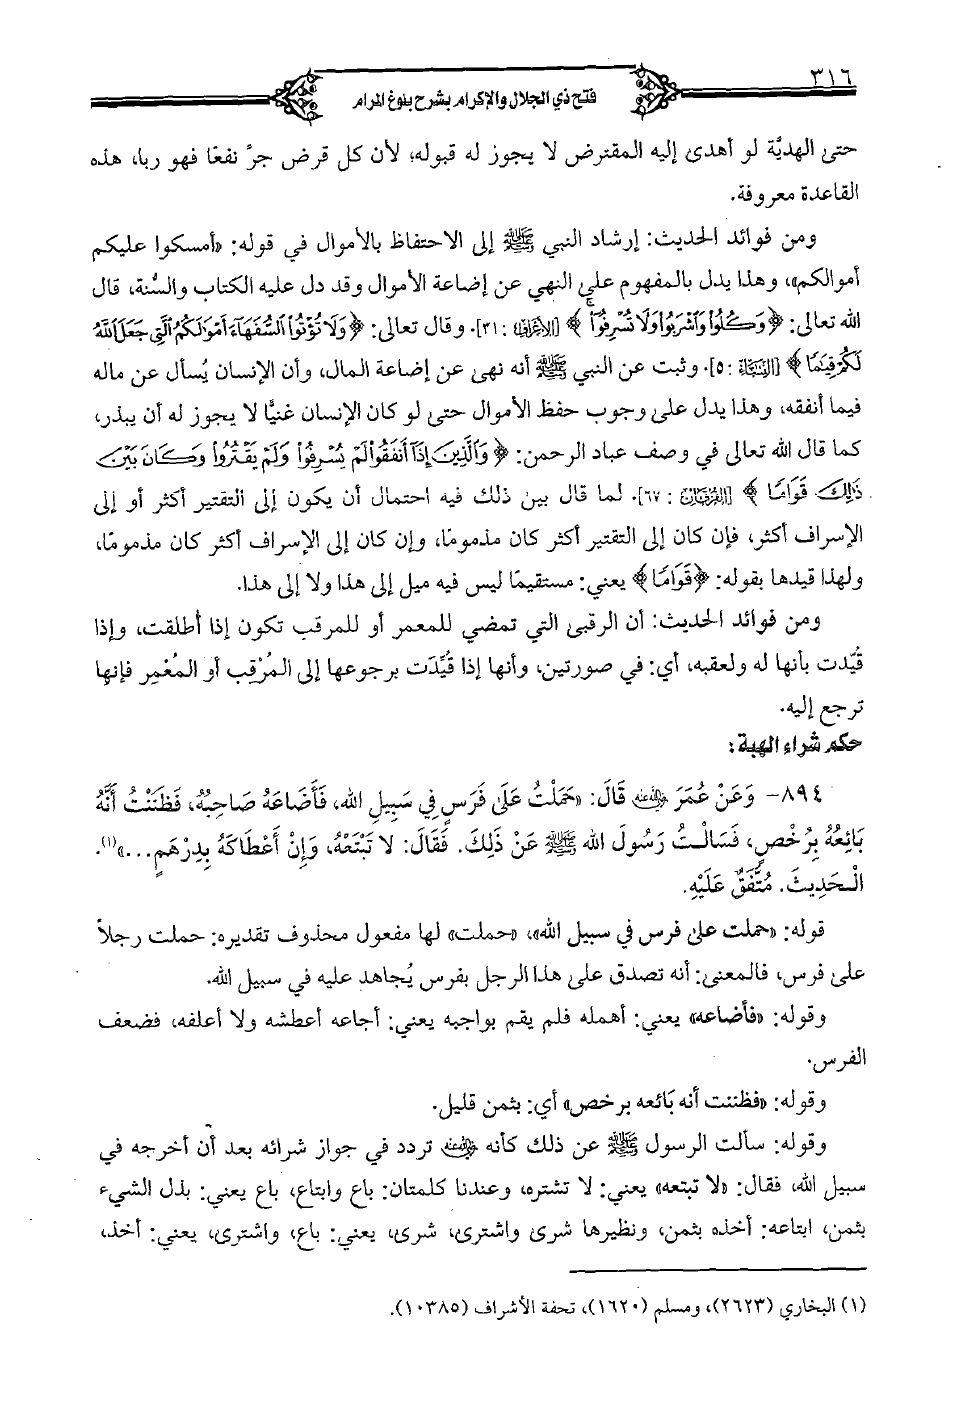 ٣١٦
فتح ذي الجلال والإكرام بشرح بلوغ المرام
حتى الهديَّة لو أهدى إليه المقترض لا يجوز له قبوله؛ لأن كل قرض جرَّ نفعًا فهو ربا، هذه
القاعدة معروفة.
ومن فوائد الحديث: إرشاد النبي ﷺ إلى الاحتفاظ بالأموال في قوله: «أمسكوا عليكم
أموالكم»، وهذا يدل بالمفهوم على النهي عن إضاعة الأموال وقد دل عليه الكتاب والسُّنة، قال
الله تعالى: ﴿وَكُلُوا وَاشْرَبُوا وَلَا تُسْرِفُوا﴾ [الأعراف: ٣١]. وقال تعالى: ﴿وَلَا تُؤْتُوا السُّفَهَاءَ أَمْوَالَكُمُ الَّتِي جَعَلَ اللَّهُ
لَكُمْ قِيَامًا﴾ [النساء: ٥]. وثبت عن النبي ﷺ أنه نهى عن إضاعة المال، وأن الإنسان يُسأل عن ماله
فيما أنفقه، وهذا يدل على وجوب حفظ الأموال حتى لو كان الإنسان غنيًّا لا يجوز له أن يبذر،
كما قال الله تعالى في وصف عباد الرحمن: ﴿وَالَّذِينَ إِذَا أَنفَقُوا لَمْ يُسْرِفُوا وَلَمْ يَقْتُرُوا وَكَانَ بَيْنَ
ذَلِكَ قَوَامًا﴾ [الفرقان: ٦٧]. لما قال بين ذلك فيه احتمال أن يكون إلى التقتير أكثر أو إلى
الإسراف أكثر، فإن كان إلى التقتير أكثر كان مذمومًا، وإن كان إلى الإسراف أكثر كان مذمومًا،
ولهذا قيدها بقوله: ﴿قَوَامًا﴾ يعني: مستقيمًا ليس فيه ميل إلى هذا ولا إلى هذا.
ومن فوائد الحديث: أن الرقبى التي تمضي للمعمر أو للمرقب تكون إذا أطلقت، وإذا
قُيِّدت بأنها له ولعقبه، أي: في صورتين، وأنها إذا قُيِّدَت برجوعها إلى المُرْقِب أو المُعْمِر فإنها
ترجع إليه.
حكم شراء الهبة:
٨٩٤- وَعَنْ عُمَرَ رضي الله عنه قَالَ: «حَمَلْتُ عَلَى فَرَسٍ فِي سَبِيلِ الله، فَأَضَاعَهُ صَاحِبُهُ، فَظَنَنْتُ أَنَّهُ
بَائِعُهُ بِرُخْصٍ، فَسَأَلْتُ رَسُولَ الله ﷺ عَنْ ذَلِكَ. فَقَالَ: لا تَبْتَعْهُ، وَإِنْ أَعْطَاكَهُ بِدِرْهَمٍ...»(١).
الْحَدِيثَ. مُتَّفَقٌ عَلَيْهِ.
قوله: «حملت على فرس في سبيل الله»، «حملت» لها مفعول محذوف تقديره: حملت رجلاً
على فرس، فالمعنى: أنه تصدق على هذا الرجل بفرس يُجاهد عليه في سبيل الله.
وقوله: «فأضاعه» يعني: أهمله فلم يقم بواجبه يعني: أجاعه أعطشه ولا أعلفه، فضعف
الفرس.
وقوله: «فظننت أنه بَائعه برخص» أي: بثمن قليل.
وقوله: سألت الرسول ﷺ عن ذلك كأنه رضي الله عنه تردد في جواز شرائه بعد أن أخرجه في
سبيل الله، فقال: «لا تبتعه» يعني: لا تشتره، وعندنا كلمتان: باع وابتاع، باع يعني: بذل الشيء
بثمن، ابتاعه: أخذه بثمن، ونظيرها شرى واشترى، شرى، يعني: باع، واشترى، يعني: أخذ،
(١) البخاري (٢٦٢٣)، ومسلم (١٦٢٠)، تحفة الأشراف (١٠٣٨٥).